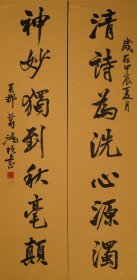 歲在甲辰夏月
清詩為洗心源濁
神妙獨到秋毫顛
吴郡葛鴻楨書